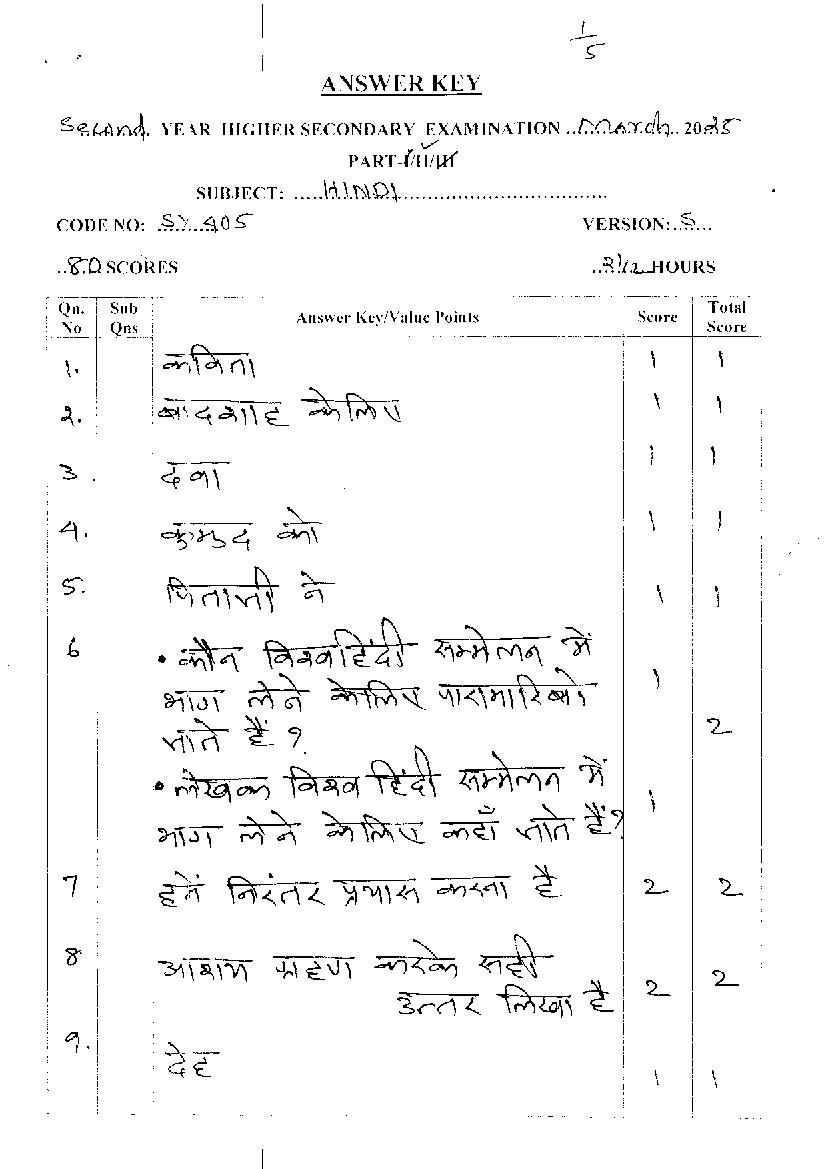 1/5
ANSWER KEY
Second YEAR HIGHER SECONDARY EXAMINATION ..March.. 2025
PART-I/II/III
SUBJECT: .....HINDI.....
CODE NO: SY 405
VERSION: S
80 SCORES
3 1/2 HOURS
Qn. No Sub Qns Answer Key/Value Points Score Total Score
1. कविता 1 1
2. बादशाह केलिए 1 1
3. दवा 1 1
4. कुमुद को 1 1
5. पिताजी ने 1 1
6 • कौन विश्वहिंदी सम्मेलन में
भाग लेने केलिए पारामारिबो 1
जाते हैं ? 2
• लेखक विश्व हिंदी सम्मेलन में
भाग लेने केलिए कहाँ जाते हैं? 1
7 हमें निरंतर प्रयास करना है 2 2
8 आशय ग्रहण करके सही
उत्तर लिखा है 2 2
9. देह 1 1